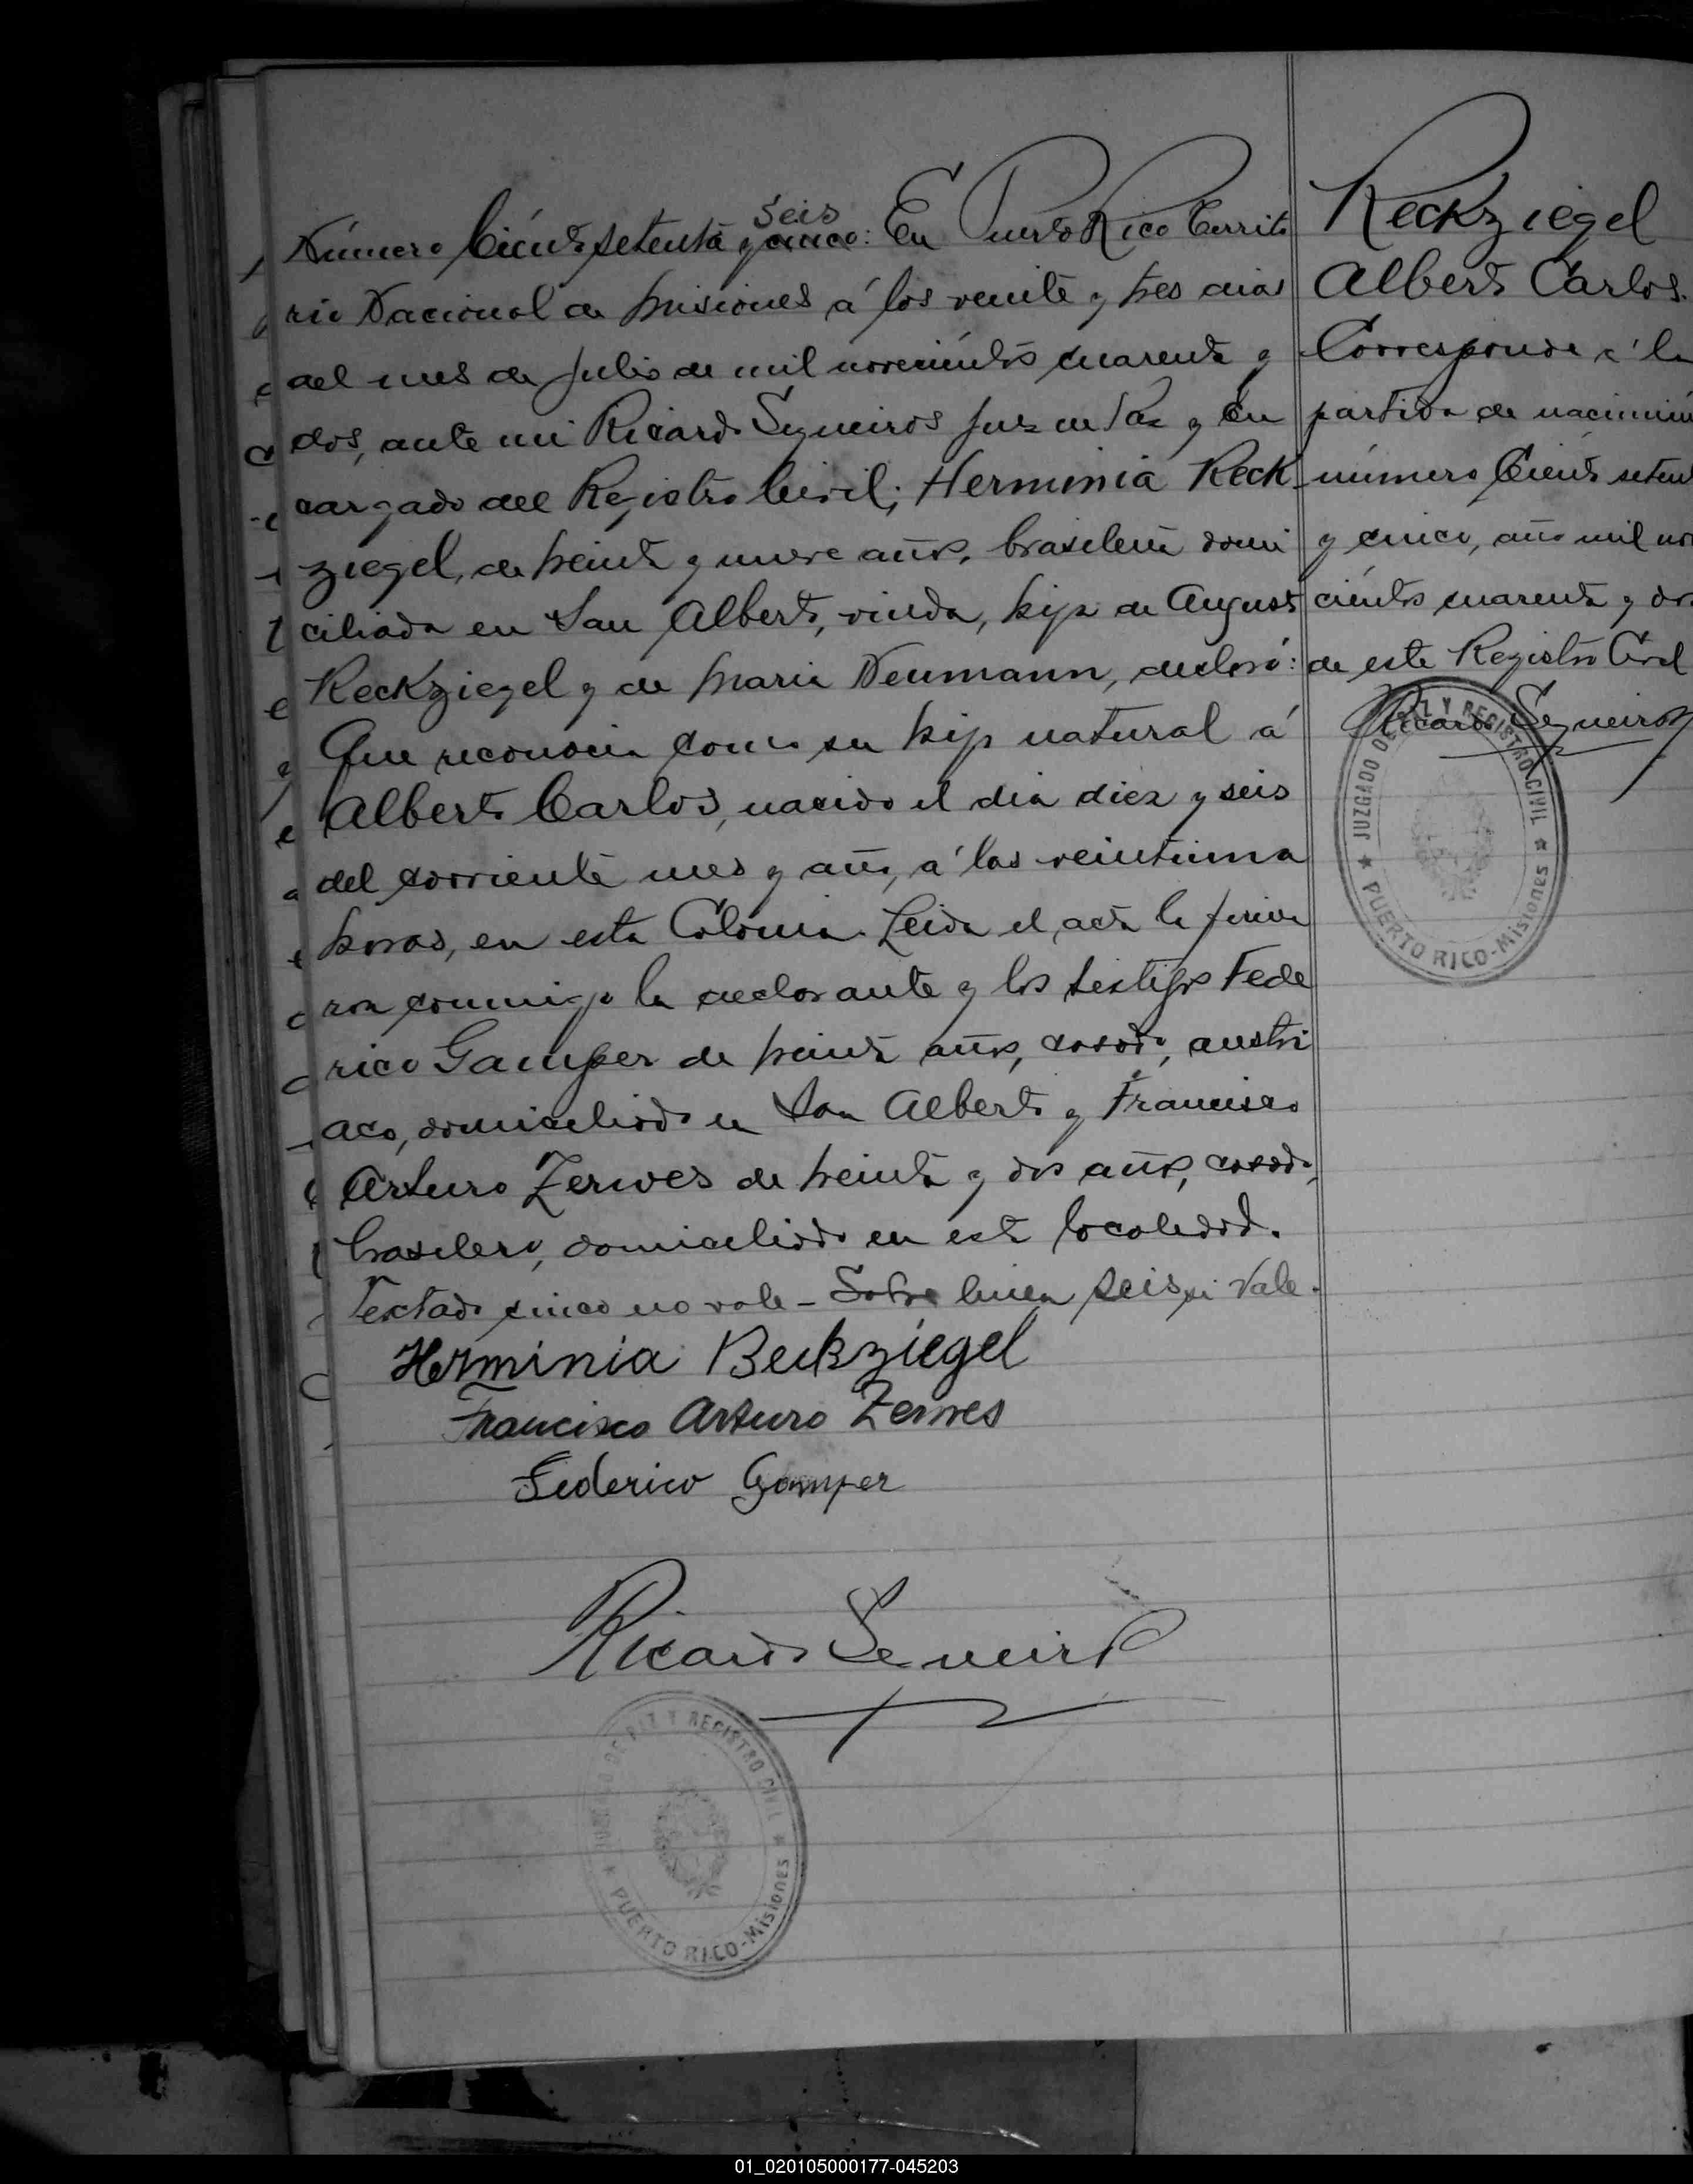 seis
Número Ciento setenta y cinco: En Puerto Rico Territo
rio Nacional de Misiones á los veinte y tres dias
del mes de Julio de mil novecientos cuarenta y
dos, ante mi Ricardo Seqneiros Juez de Paz y En
cargado del Registro Civil; Herminia Reck
ziegel, de treinta y nueve años, brasileña domi
ciliada en San Alberto, viuda, hija de Augusto
Reckziegel y de Maria Neumann, declaró:
Que reconocia como su hijo natural á
Alberto Carlos, nacido el dia diez y seis
del corriente mes y año, á las veintiuna
horas, en esta Colonia. Leida el acta la firma
ron conmigo la declarante y los testigos Fede
rico Gamper de treinta años, casado, austri
aco, domiciliado en San Alberto y Francisco
Arturo Zerwes de treinta y dos años, casado,
brasilero, domiciliado en esta localidad.
Testado cinco no vale - Sobre linea seis si vale.
Herminia Reckziegel
Francisco Arturo Zerwes
Federico Gamper
Ricardo Seqneiros
JUZGADO DE PAZ Y REGISTRO CIVIL
PUERTO RICO-Misiones
Reckziegel
Alberto Carlos.
Corresponde á la
partida de nacimien
número Ciento seten
y cinco, año mil no
cientos cuarenta y do
de este Registro Civil
Ricardo Seqneiros
JUZGADO DE PAZ Y REGISTRO CIVIL
PUERTO RICO-Misiones
01_020105000177-045203